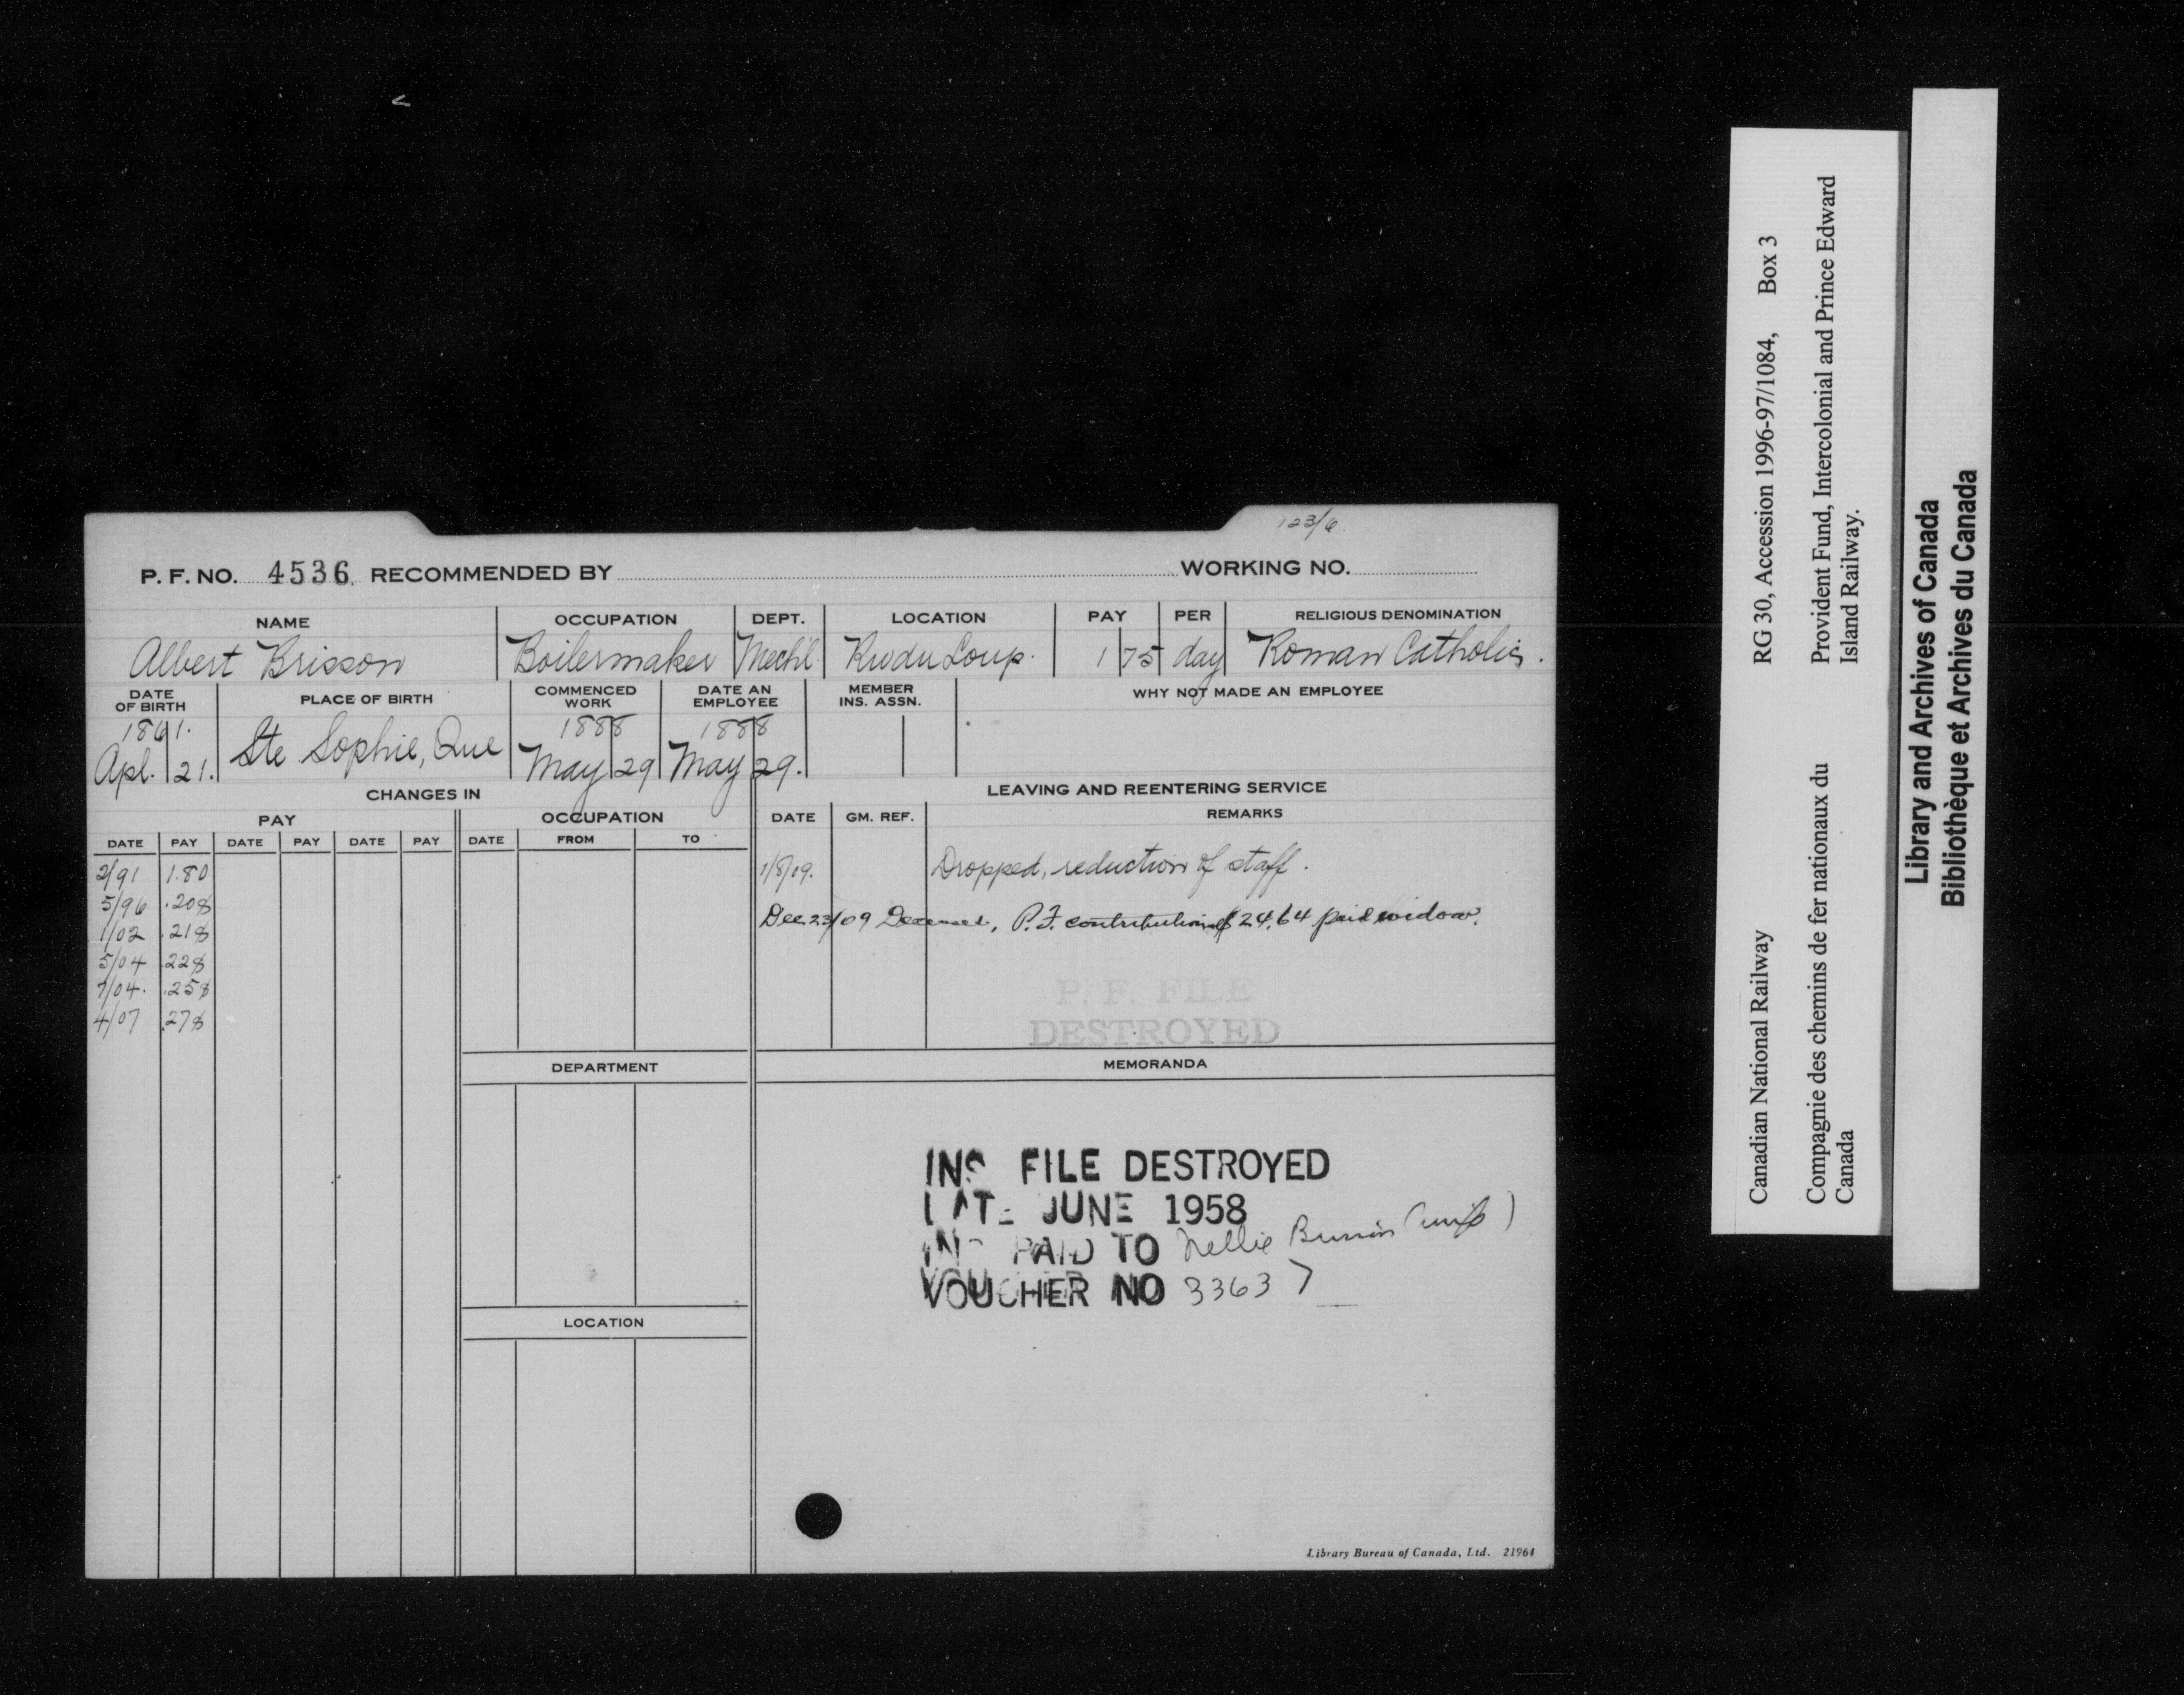 123/6.
P. F. NO. 4536 RECOMMENDED BY WORKING NO.
NAME OCCUPATION DEPT. LOCATION PAY PER RELIGIOUS DENOMINATION
Albert Brisson Boilermaker Mech'l. Riv du Loup. 1 75 day Roman Catholic.
DATE OF BIRTH PLACE OF BIRTH COMMENCED WORK DATE AN EMPLOYEE MEMBER INS. ASSN. WHY NOT MADE AN EMPLOYEE
1861. 1888 1888
Apl. 21. Ste Sophie, Que May 29 May 29.
CHANGES IN LEAVING AND REENTERING SERVICE
PAY OCCUPATION DATE GM. REF. REMARKS
DATE PAY DATE PAY DATE PAY DATE FROM TO
2/91 1.80 1/8/09. Dropped, reduction of staff.
5/96 .20
1/02 .21 Dec. 23/09 Deceased, P.F. contributions $24.64 paid widow.
5/04 .22
7/04. .25 P. F. FILE
4/07 .27 DESTROYED
DEPARTMENT MEMORANDA
INS FILE DESTROYED
LATE JUNE 1958
INS PAID TO Nellie (wife)
VOUCHER NO 33637
LOCATION
Library Bureau of Canada, Ltd. 21964
Canadian National Railway RG 30, Accession 1996-97/1084, Box 3
Compagnie des chemins de fer nationaux du Provident Fund, Intercolonial and Prince Edward
Canada Island Railway.
Library and Archives of Canada
Bibliothèque et Archives du Canada